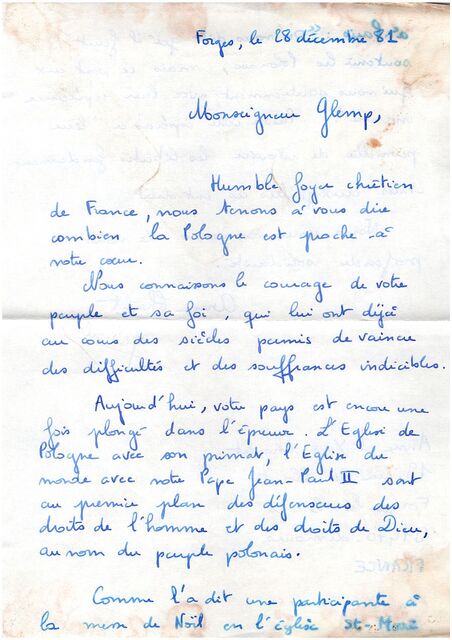 Forges, le 28 décembre 81
Monseigneur Glemp,
Humble foyer chrétien
de France, nous tenons à vous dire
combien la Pologne est proche à
notre cœur.
Nous connaissons le courage de votre
peuple et sa foi, qui lui ont déjà
au cours des siècles permis de vaincre
des difficultés et des souffrances indicibles.
Aujourd'hui, votre pays est encore une
fois plongé dans l'épreuve. L'Eglise de
Pologne avec son primat, l'Église du
monde avec notre Pape Jean-Paul II sont
au premier plan des défenseurs des
droits de l'homme et des droits de Dieu,
au nom du peuple polonais.
Comme l'a dit une participante à
la messe de Noël en l'Église
FRANCE